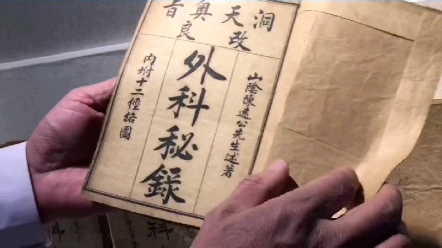 洞天奥旨
改良
山陰陳遠公先生述著
外科秘錄
内坿十二經絡圖
科
科